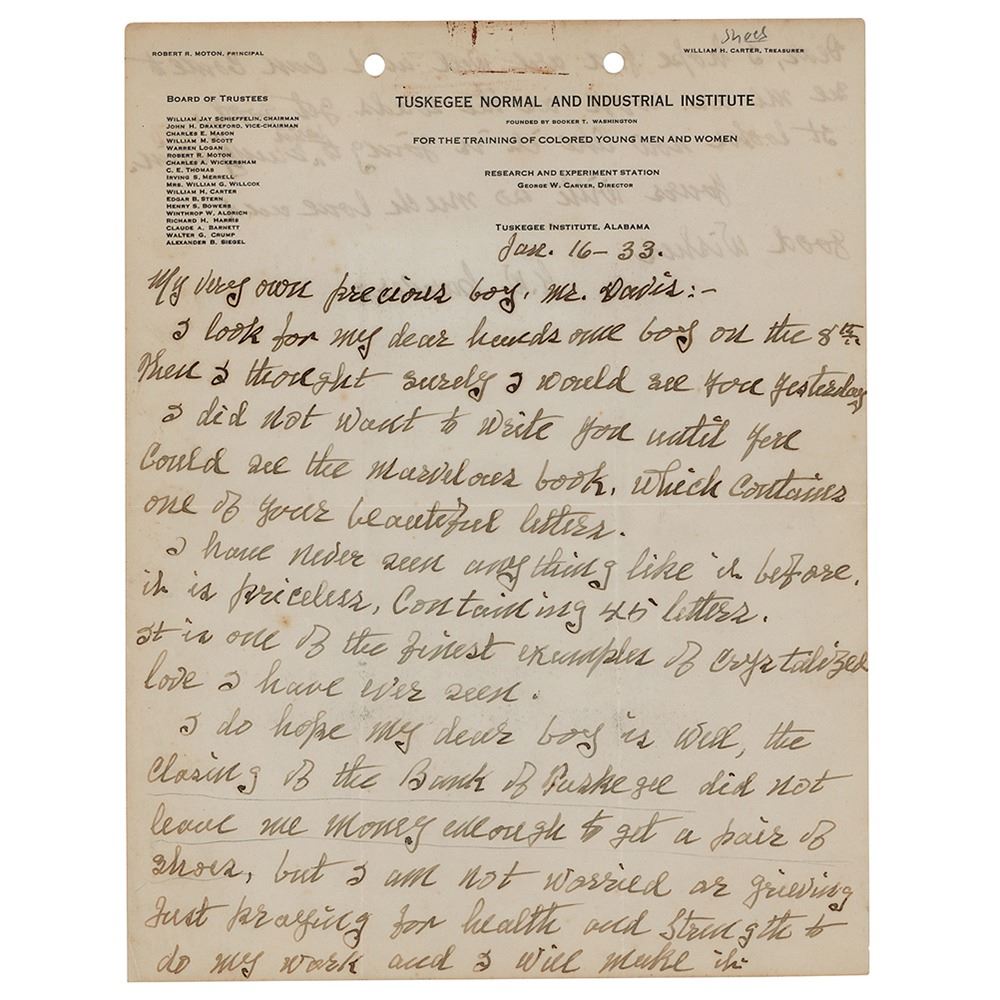 Shoes
ROBERT R. MOTON, PRINCIPAL
WILLIAM H. CARTER, TREASURER
BOARD OF TRUSTEES
WILLIAM JAY SCHIEFFELIN, CHAIRMAN
JOHN H. DRAKEFORD, VICE-CHAIRMAN
CHARLES E. MASON
WILLIAM M. SCOTT
WARREN LOGAN
ROBERT R. MOTON
CHARLES A. WICKERSHAM
C. E. THOMAS
IRVING S. MERRELL
MRS. WILLIAM G. WILLCOX
WILLIAM H. CARTER
EDGAR B. STERN
HENRY S. BOWERS
WINTHROP W. ALDRICH
RICHARD H. HARRIS
CLAUDE A. BARNETT
WALTER G. CRUMP
ALEXANDER B. SIEGEL
TUSKEGEE NORMAL AND INDUSTRIAL INSTITUTE
FOUNDED BY BOOKER T. WASHINGTON
FOR THE TRAINING OF COLORED YOUNG MEN AND WOMEN
RESEARCH AND EXPERIMENT STATION
GEORGE W. CARVER, DIRECTOR
TUSKEGEE INSTITUTE, ALABAMA
Jan. 16-33.
My very own precious boy, Mr. Davis:-
I look for my dear handsome boy on the 8th
Then I thought surely I would see you yesterday
I did not want to write you until you
could see the marvelous book, which contains
one of your beautiful letters.
I have never seen anything like it before,
it is priceless, containing 45 letters.
It is one of the finest examples of crystalized
love I have ever seen.
I do hope my dear boy is well, the
closing of the Bank of Tuskegee did not
leave me money enough to get a pair of
shoes, but I am not worried or grieving
Just praying for health and strength to
do my work and I will make it